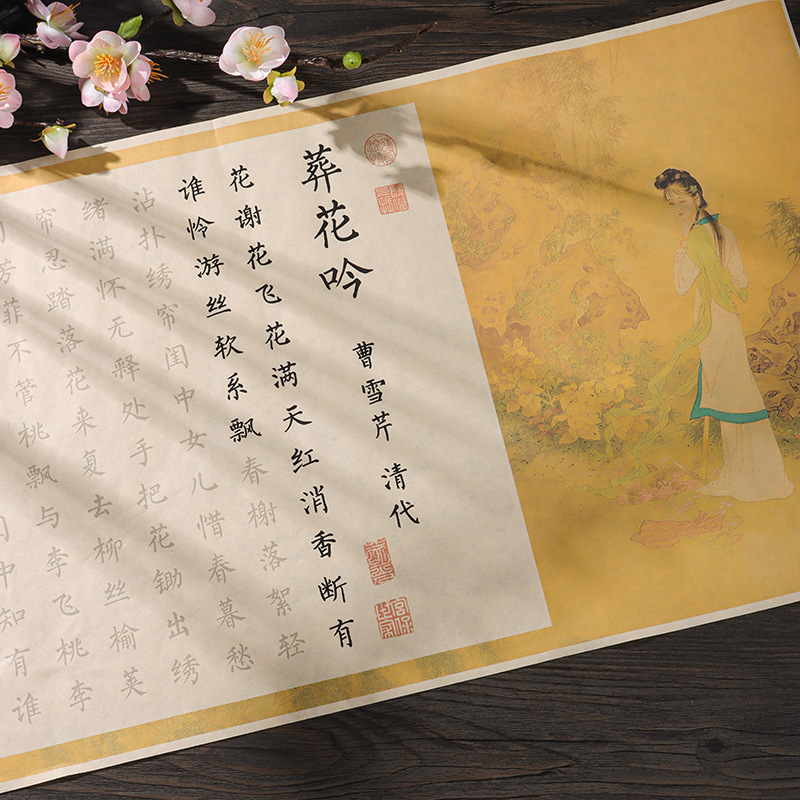 葬花吟
曹雪芹 清代
花谢花飞花满天红消香断有
谁怜游丝软系飘春榭落絮轻
沾扑绣帘闺中女儿惜春暮愁
绪满怀无释处手把花锄出绣
帘忍踏落花来复去柳丝榆荚
芳菲不管桃飘与李飞桃李
中知有谁